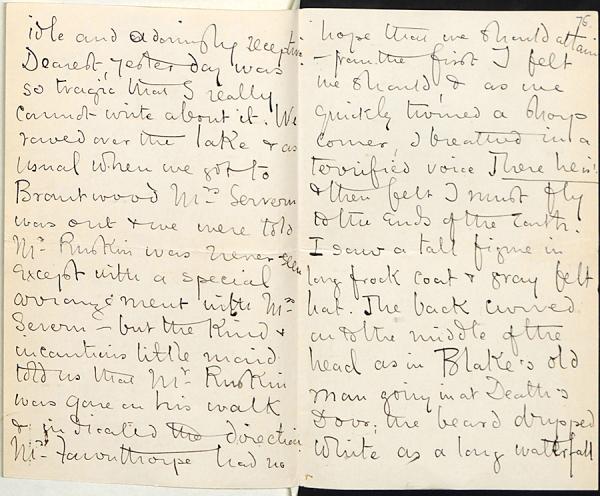 idle and adoringly receptive
Dearest, yesterday was
so tragic that I really
cannot write about it. We
rowed over the lake & as
usual when we got to
Brantwood Mrs Severn
was out & we were told
Mr Ruskin was never seen
except with a special
arrangement with Mrs
Severn – but the kind &
incautious little maid
told us that Mr Ruskin
was gone on his walk
& indicated the direction
Mr Faunthorpe had no
76.
hope that we should attain
– from the first I felt
we should, & as we
quickly turned a sharp
corner, I breathed in a
terrified voice There he is!
& then felt I must fly
to the Ends of the Earth.
I saw a tall figure in
long frock coat & gray felt
hat. The back curved
on to the middle of the
head as in Blake's old
man going in at Death's
Door, the beard dropped
white as a long waterfall